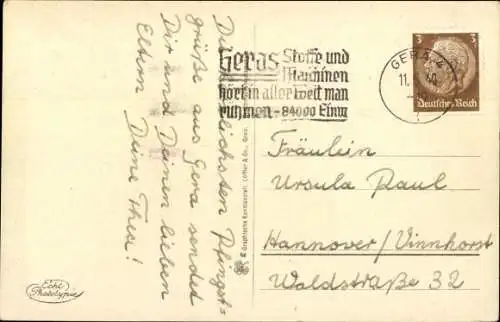 Die herzlichsten Pfingst-
grüße aus Gera sendet
Dir und Deinen lieben
Eltern
Deine Thea!
Echt
Photolypie
Graphische Kunstanstalt Löffler & Co., Greiz
Geras Stoffe und
Maschinen
hört in aller Welt man
rühmen - 84000 Einw
GERA 2
11.
3 3
Deutsches Reich
Fräulein
Ursula Paul
Hannover/Vinnhorst
Waldstraße 32